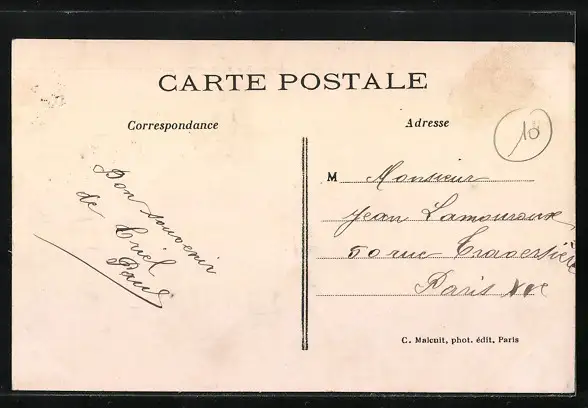 CARTE POSTALE
Correspondance
Adresse
18
Bon souvenir
de Criel
Paul
M Monsieur
Jean Lamouroux
50 rue Traversière
Paris
C. Malcuit, phot. édit. Paris